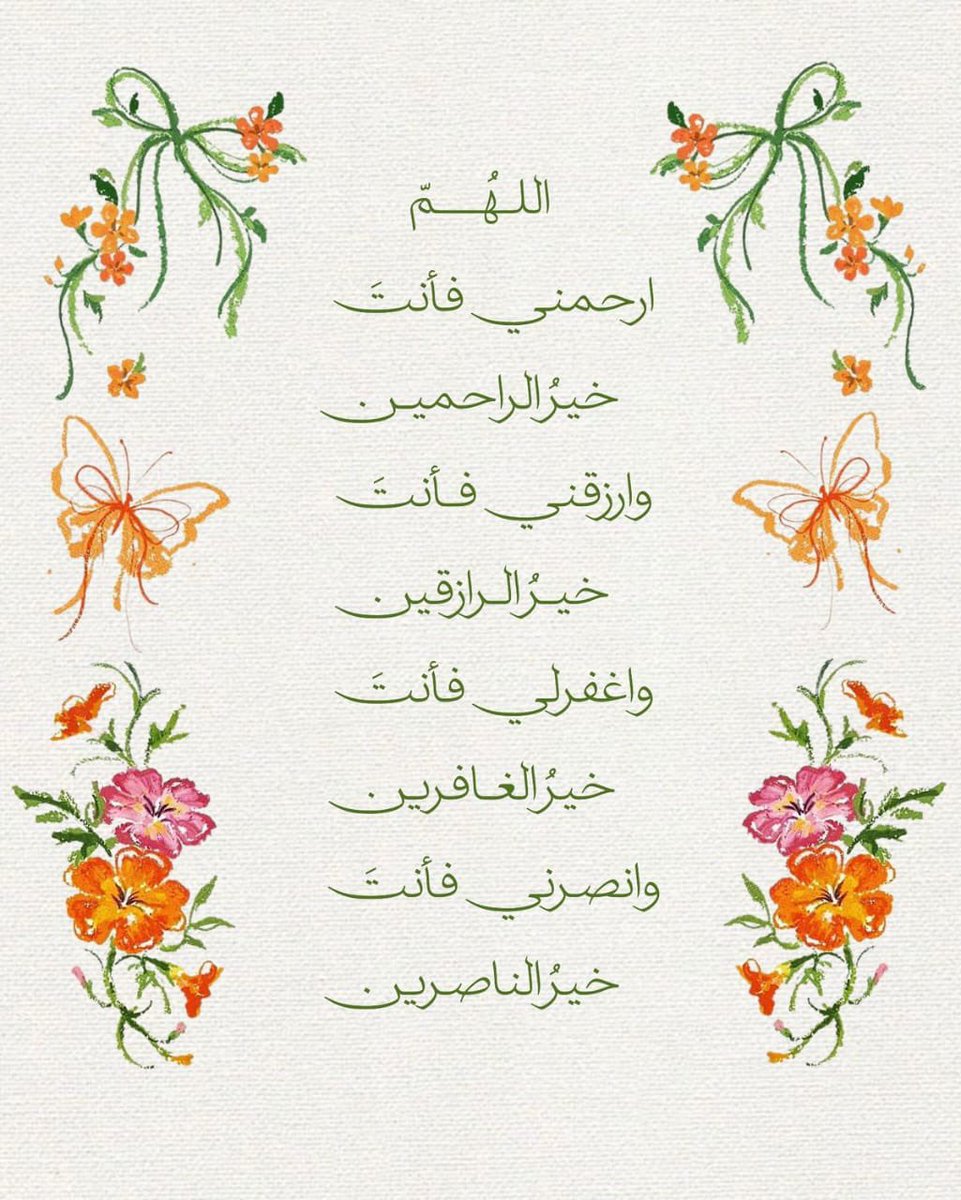 اللـهُـــمّ
ارحمني فأنتَ
خيرُ الراحمين
وارزقني فأنتَ
خيرُ الرازقين
واغفرلي فأنتَ
خيرُ الغافرين
وانصرني فأنتَ
خيرُ الناصرين